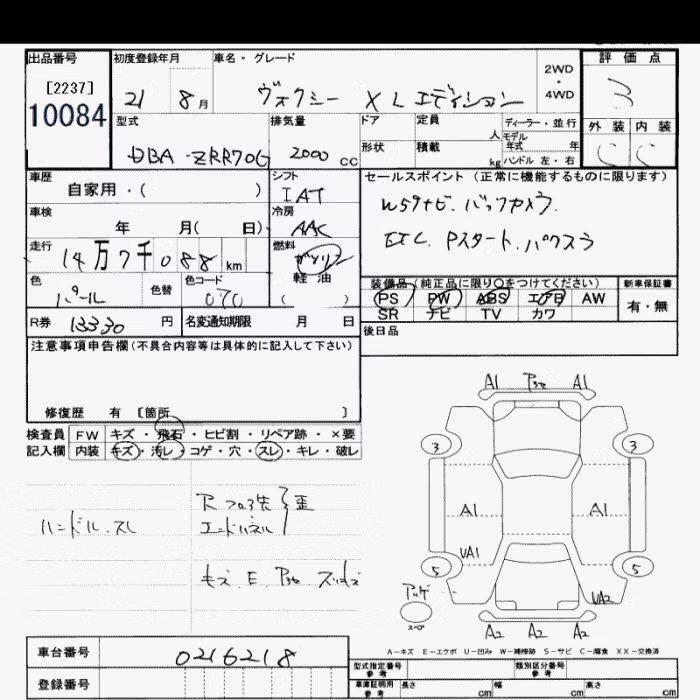 出品番号 初度登録年月 車名・グレード 2WD・4WD 評価点
[2237]
10084
21 8月 ヴォクシー XLエディション 3
型式 排気量 ドア 定員 人 ディーラー・並行 外装 内装
モデル年式 年
DBA-ZRR70G 2000cc 形状 積載 kg ハンドル 左・右 C C
車歴 シフト セールスポイント(正常に機能するものに限ります)
自家用・( ) IAT
W59ナビ.バックカメラ.
車検 冷房
年 月( 日) AAC
ETC.Pスタート.パワスラ
走行 燃料
14万7千088km ガソリン
軽油
( )
色 色替 色コード
パール 070
装備品(純正品に限り○をつけてください) 新車保証書
PS PW ABS エアB AW 有・無
SR ナビ TV カワ
R券 13330円 名変通知期限 月 日
後日品
注意事項申告欄(不具合内容等は具体的に記入して下さい)
修復歴 有 [箇所 ]
検査員 FW キズ・飛石・ヒビ割・リペア跡・×要
記入欄 内装 キズ・汚レ・コゲ・穴・スレ・キレ・破レ
A1 A1
3 3
A1 A1
ハンドル.スレ
UA1
5 5
UA2
スペア
A2 A2 A2
A-キズ E-エクボ U-凹み W-補修跡 S-サビ C-腐食 XX-交換済
車台番号 0216218
型式指定番号 参考 類別区分番号 参考
登録番号
車庫証明用 参考 長さ cm 幅 cm 高さ cm